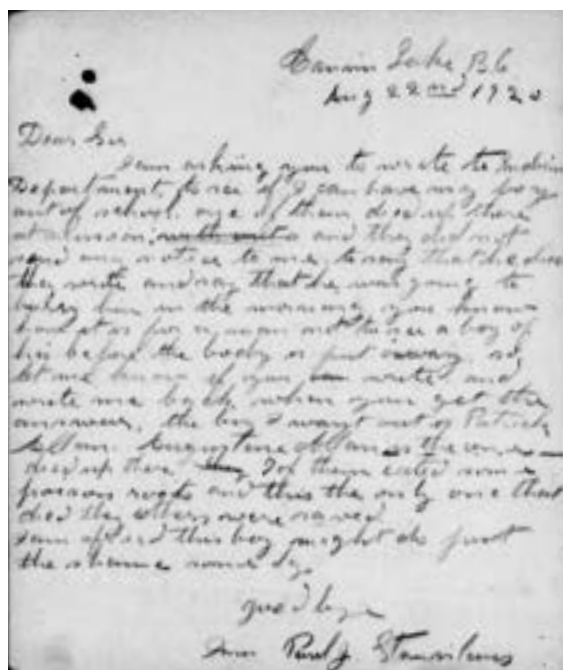 Canim Lake, B.C.
Aug 22nd 1920
Dear Sir
I am asking you to write to Indian
Department, to see if I can have my boy
out of school. one of them died up there
at mission, and they did not
send any notice to me, to say that he died
they write and say that he was going to
bury him in the morning. you know
hard it is for a man not to see a boy of
his before the body is put away. so
let me know if you write and
write me back when you get the
answer. the boy I want out is Patrick
Allan. Augustine Allan is the one
died up there of them eated some
poison roots and this the only one that
died the others were saved
I am afraid this boy might do just
the shame some day
good bye
from Paul Stanislaus